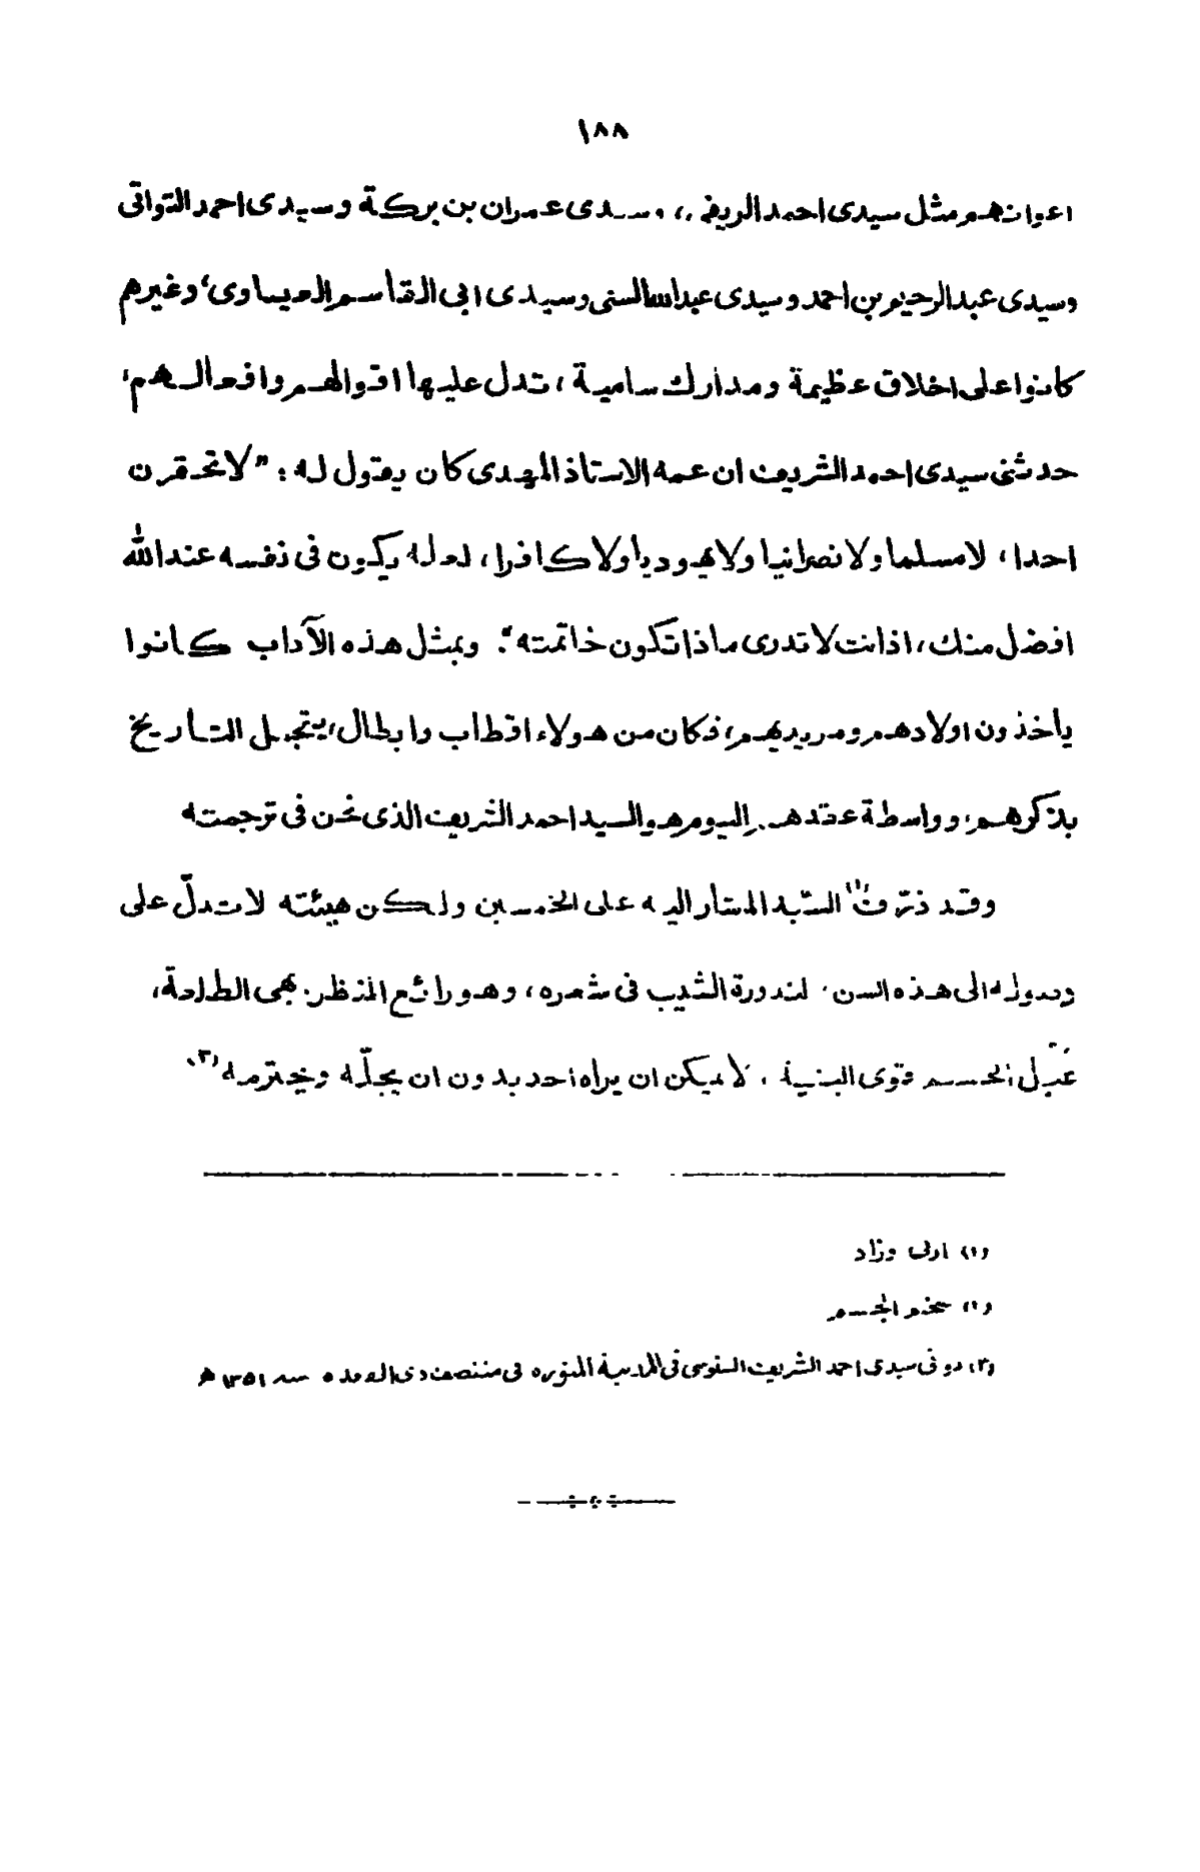 ١٨٨
اعوانهم مثل سيدى احمد الريفى، وسيدى عمران بن بركة وسيدى احمد التواتى
وسيدى عبدالرحيم بن احمد وسيدى عبدالله السنى وسيدى ابى القاسم العيساوى، وغيرهم
كانوا على اخلاق عظيمة ومدارك سامية، تدل عليها اقوالهم وافعالهم،
حدثنى سيدى احمد الشريف ان عمه الاستاذ المهدى كان يقول له: "لا تحقرن
احدا، لا مسلما ولا نصرانيا ولا يهوديا ولا كافرا، لعله يكون فى نفسه عند الله
افضل منك، اذ انت لا تدرى ماذا تكون خاتمته". وبمثل هذه الآداب كانوا
يأخذون اولادهم ومريديهم، فكان من هولاء اقطاب وابطال، يتجمل التاريخ
بذكرهم، وواسطة عقدهم اليوم هو السيد احمد الشريف الذى نحن فى ترجمته
وقد ذرّف(١) السيد المشار اليه على الخمسين ولكن هيئته لا تدلّ على
وصوله الى هذه السن، لندورة الشيب فى شعره، وهو رائع المنظر، بهى الطلعة،
عبل(٢) الجسم قوى البنية، لا يمكن ان يراه احد بدون ان يجلّه ويحترمه(٣).
(١) اربى وزاد
(٢) ضخم الجسم
(٣) توفى سيدى احمد الشريف السنوسى فى المدينة المنوره فى منتصف ذى القعده سنه ١٣٥١ ه